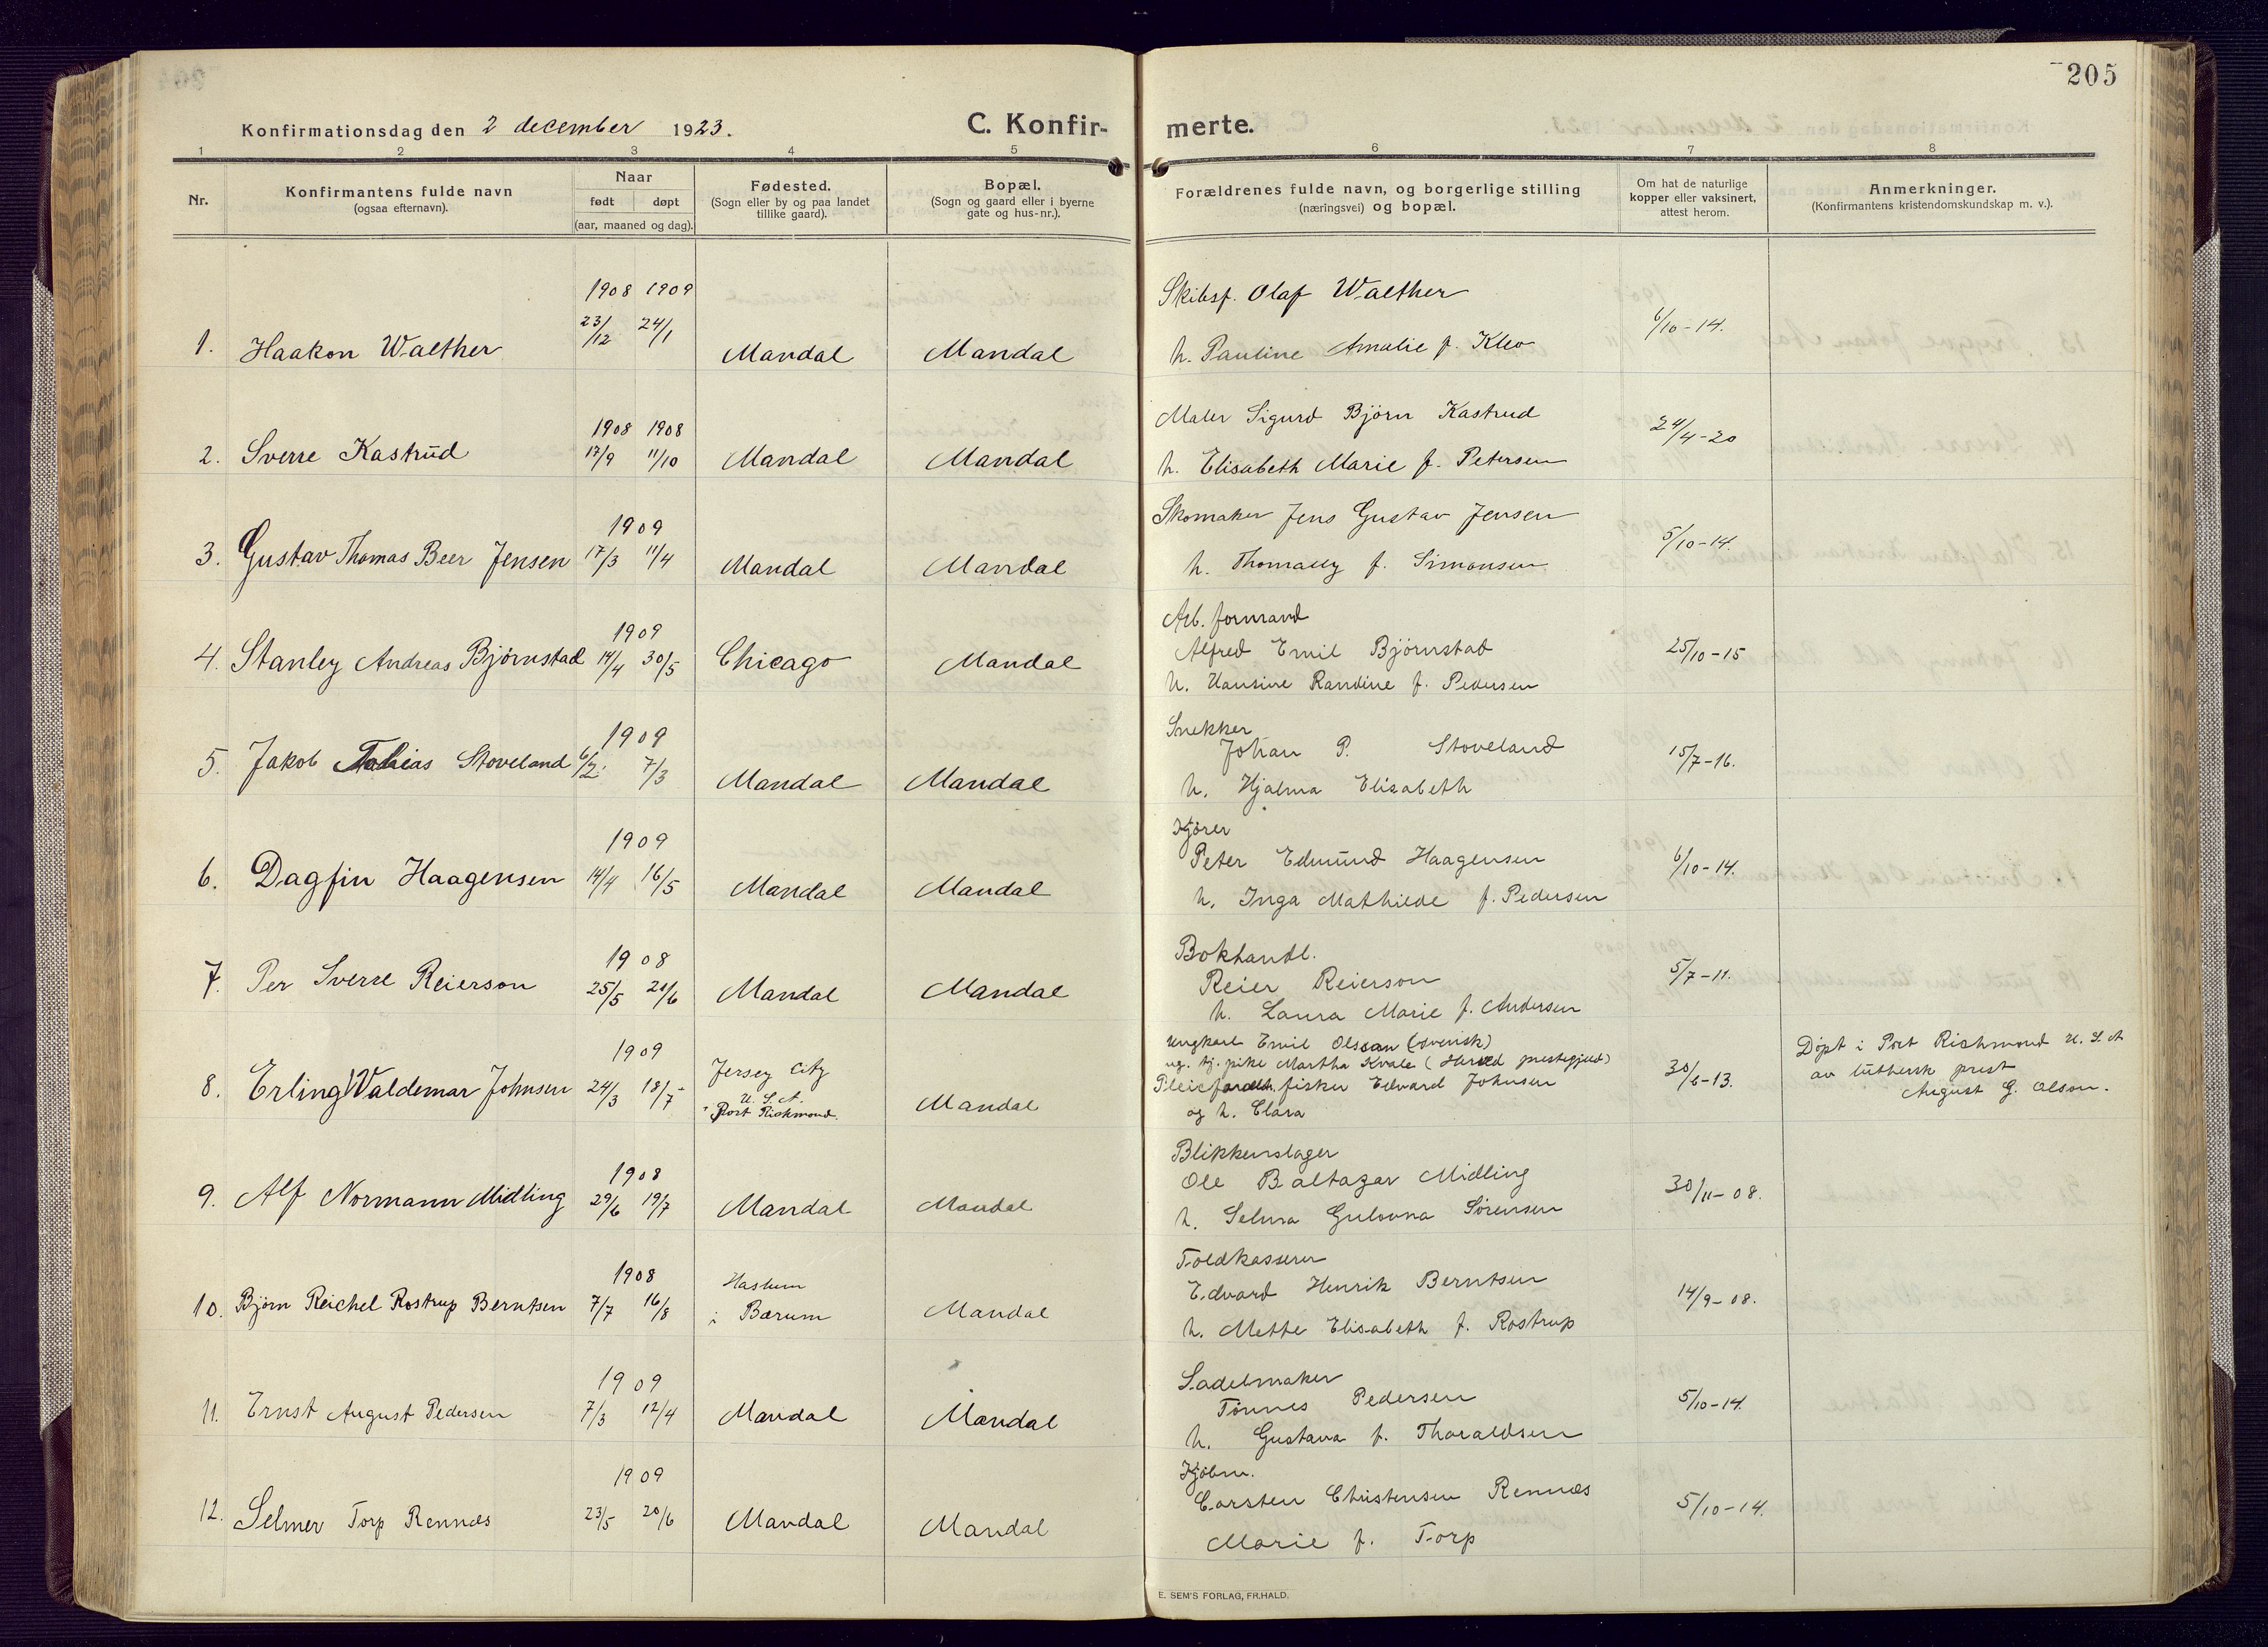 205
Konfirmationsdag den 2 december 1923.
C. Konfir-merte.
1 2 3 4 5 6 7 8
Nr.
Konfirmantens fulde navn
(ogsaa efternavn).
Naar
født døpt
(aar, maaned og dag).
Fødested.
(Sogn eller by og paa landet
tillike gaard).
Bopæl.
(Sogn og gaard eller i byerne
gate og hus-nr.).
Forældrenes fulde navn, og borgerlige stilling
(næringsvei) og bopæl.
Om hat de naturlige
kopper eller vaksinert,
attest herom.
Anmerkninger.
(Konfirmantens kristendomskundskap m. v.).
1908 1909
Skibsf. Olaf Walther
1. Haakon Walther 23/12 24/1 Mandal Mandal 6/10-14.
h. Pauline Amalie f. Kleo
1908 1908
Maler Sigurd Bjørn Kastrud
2. Sverre Kastrud 17/9 11/10 Mandal Mandal 24/4-20
h. Elisabeth Marie f. Petersen
1909
Skomaker Jens Gustav Jensen
3. Gustav Thomas Beer Jensen 17/3 11/4 Mandal Mandal 5/10-14.
h. Thomally f. Simonsen
1909
Arb. formand
4. Stanley Andreas Bjørnstad 14/4 30/5 Chicago Mandal Alfred Emil Bjørnstad 25/10-15
h. Hansine Randine f. Pedersen
1909
Snekker
5. Jakob Tobias Stoveland 6/2. 7/3 Mandal Mandal Johan P. Stoveland 15/7-16.
h. Hjalma Elisabeth
1909
Kjører
6. Dagfin Haagensen 14/4 16/5 Mandal Mandal Peter Edmund Haagensen 6/10-14.
h. Inga Mathilde f. Pedersen
1908
Bokhandl.
7. Per Sverre Reierson 25/5 21/6 Mandal Mandal Reier Reierson 5/7-11.
h. Laura Marie f. Andersen
1909
ungkarl Emil Olssan (svensk)
ug. tj. pike Martha Kvale (Herred prestegjeld)
8. Erling Valdemar Johnsen 24/3 18/7- Jersey City
U. S. A.
Port Richmond.
Mandal
Pleieforældr. fisker Edvard Johnsen
og h. Clara
30/6-13.
Døpt i Port Richmond U. S. A
av luthersk prest
August G. Olson.
1908
Blikkenslager
9. Alf Normann Midling 29/6 19/7 Mandal Mandal Ole Baltazar Midling 30/11-08.
h. Selma Gulovna Sørensen
1908
Toldkasserer
10. Bjørn Reichel Rostrup Berntsen 7/7 16/8 Haslum
i Bærum
Mandal
Edvard Henrik Berntsen 14/9-08.
h. Mette Elisabeth f. Rostrup
1909
Sadelmaker
11. Ernst August Pedersen 7/3 12/4 Mandal Mandal Tønnes Pedersen 5/10-14.
h. Gustava f. Thoraldsen
1909
Kjøbm.
12. Selmer Torp Rennæs 23/5 20/6 Mandal Mandal Carsten Christensen Rennæs 5/10-14.
Marie f. Torp
E. SEM'S FORLAG, FR.HALD.